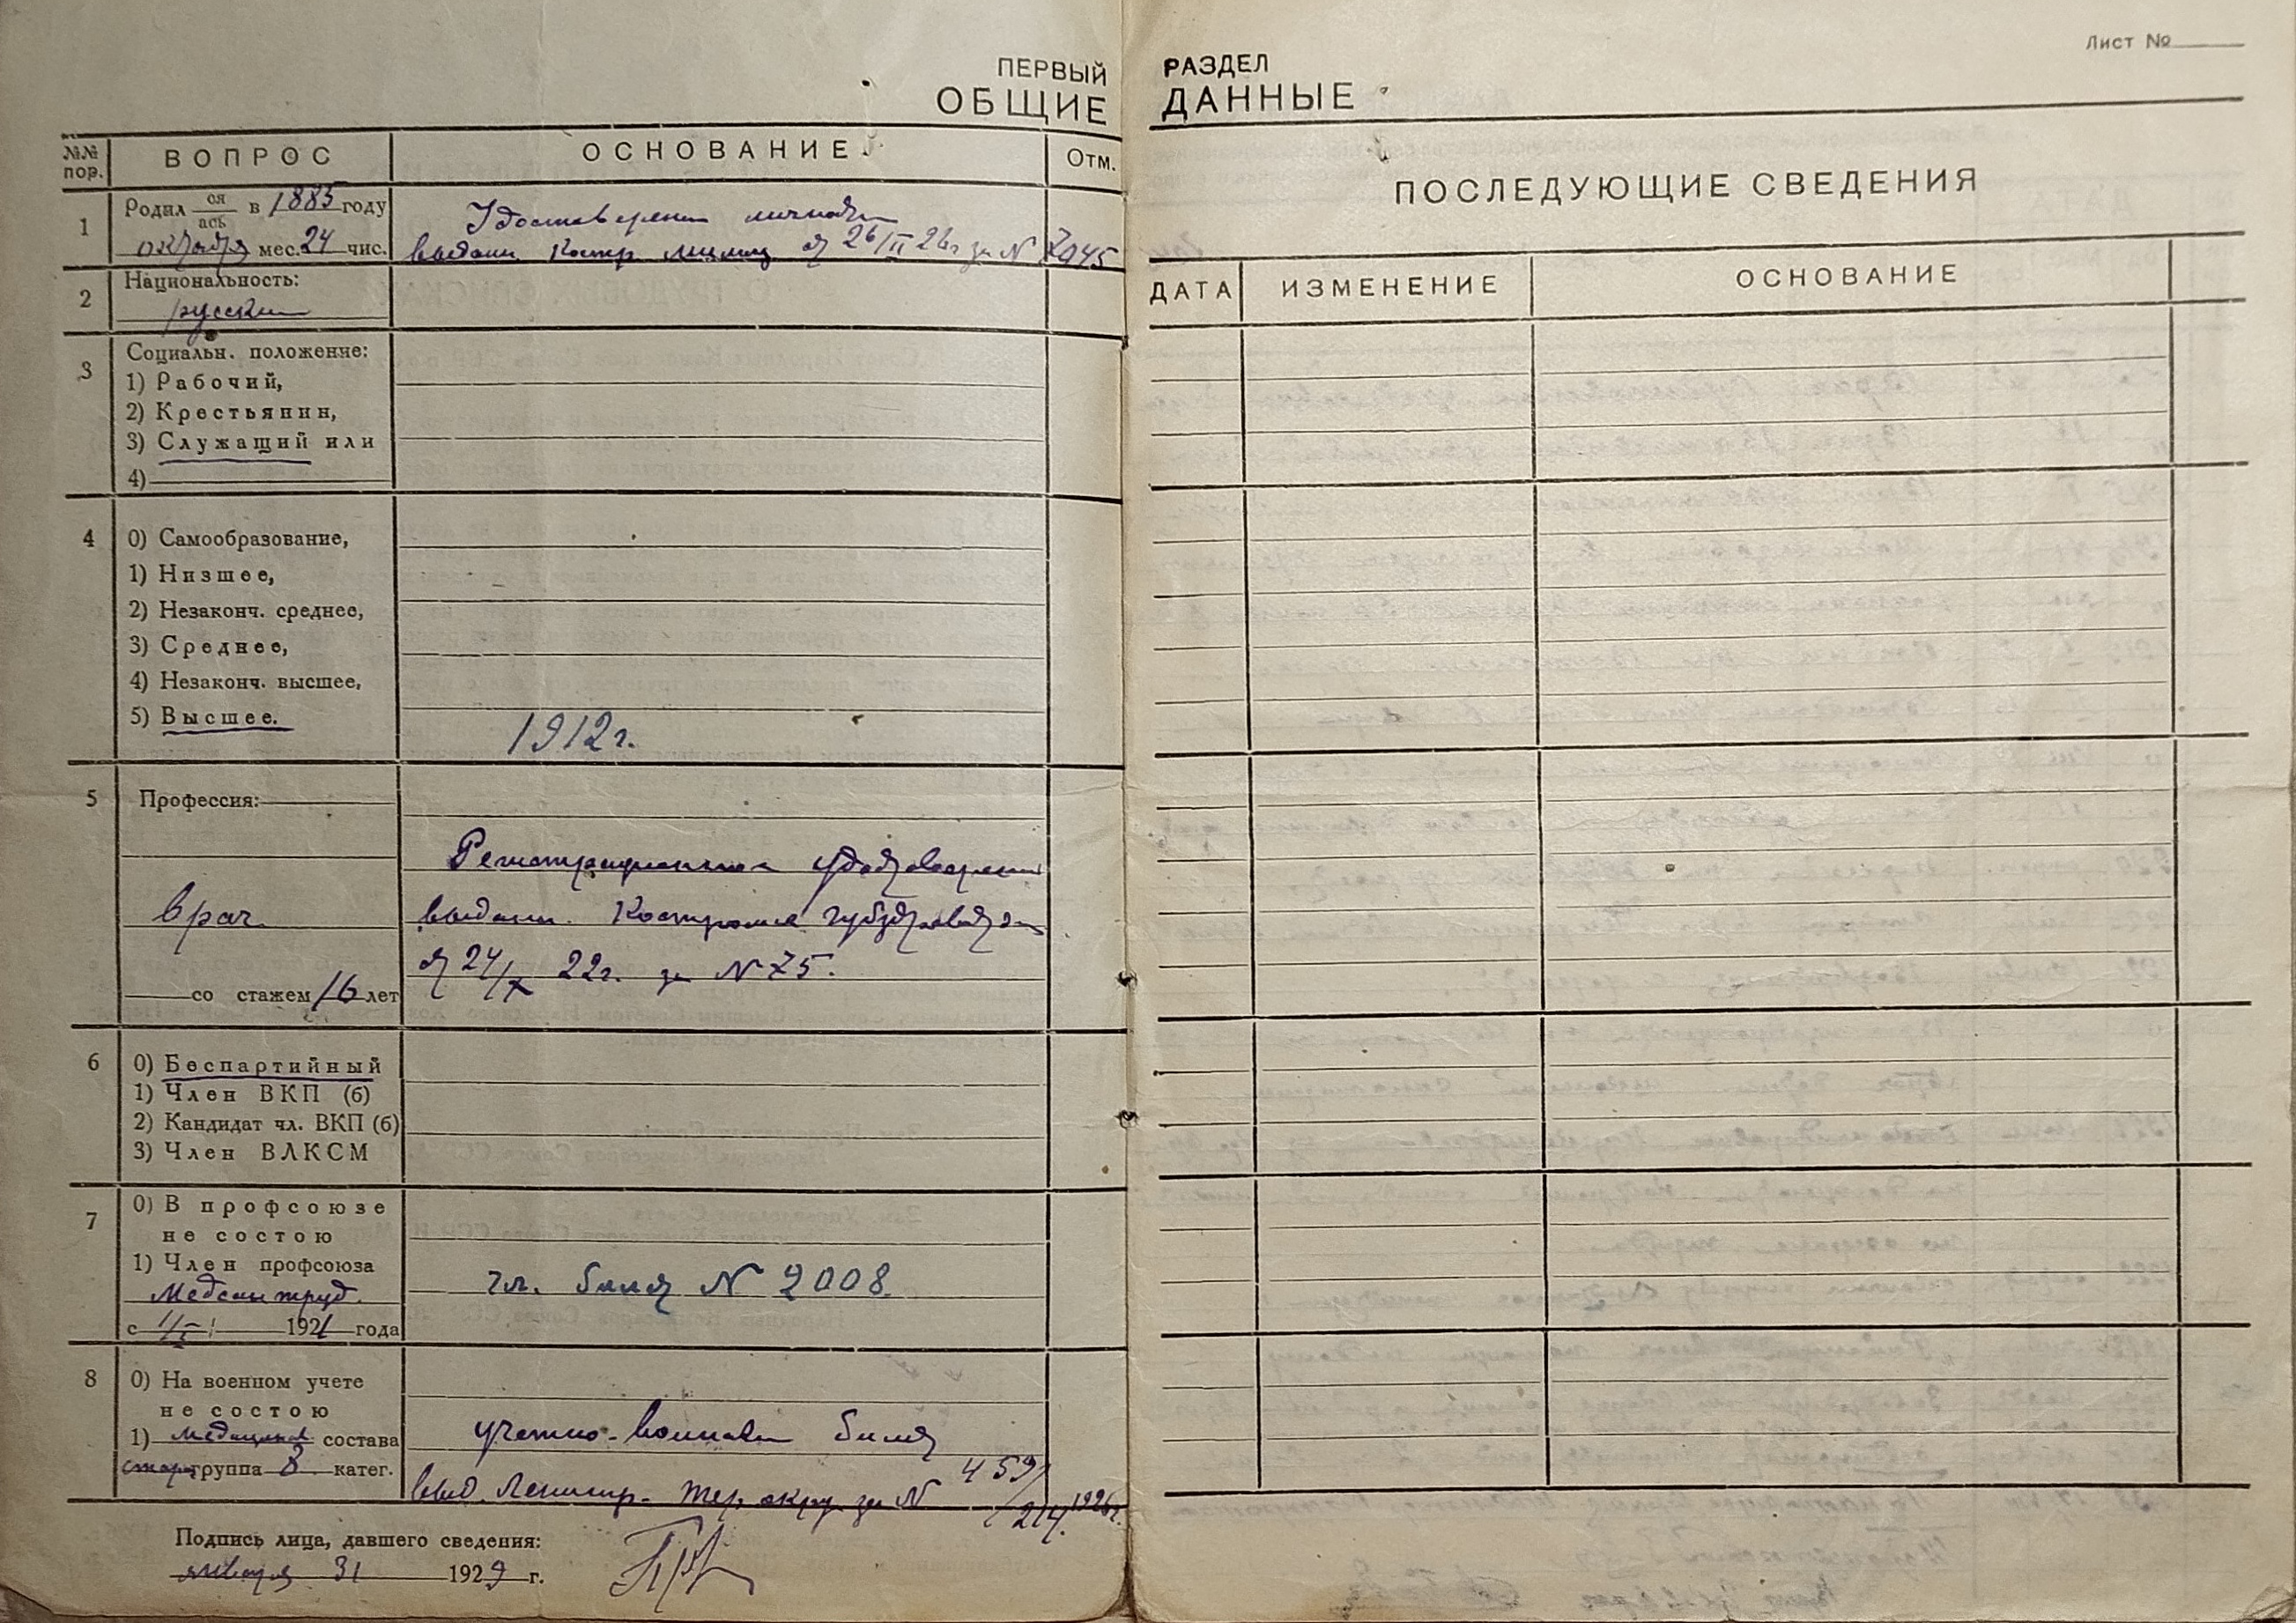 Лист №
ПЕРВЫЙ РАЗДЕЛ
ОБЩИЕ ДАННЫЕ
№№ пор.
ВОПРОС
ОСНОВАНИЕ
Отм.
1
Родил ся/ась в 1885 году
октября мес. 24 чис.
Удостоверение личности
выдан. Костр. милиц. от 26/II 26г за N 7045
2
Национальность:
русский
3
Социальн. положение:
1) Рабочий,
2) Крестьянин,
3) Служащий или
4)
4
0) Самообразование,
1) Низшее,
2) Незаконч. среднее,
3) Среднее,
4) Незаконч. высшее,
5) Высшее.
1912г.
5
Профессия:
врач
со стажем 16 лет
Регистрационное удостоверение
выдан. Костром
от 24/X 22г. за N 75.
6
0) Беспартийный
1) Член ВКП (б)
2) Кандидат чл. ВКП (б)
3) Член ВЛКСМ
7
0) В профсоюзе
не состою
1) Член профсоюза
Медсантруд.
с 1921 года
чл. билет N 2008.
8
0) На военном учете
не состою
1) медицинск. состава
группа 8 катег.
учетно-воинский билет
выд. Ленингр. тер. окру. за N 459/214. 1926г.
Подпись лица, давшего сведения:
января 31 1929 г.
ПОСЛЕДУЮЩИЕ СВЕДЕНИЯ
ДАТА
ИЗМЕНЕНИЕ
ОСНОВАНИЕ